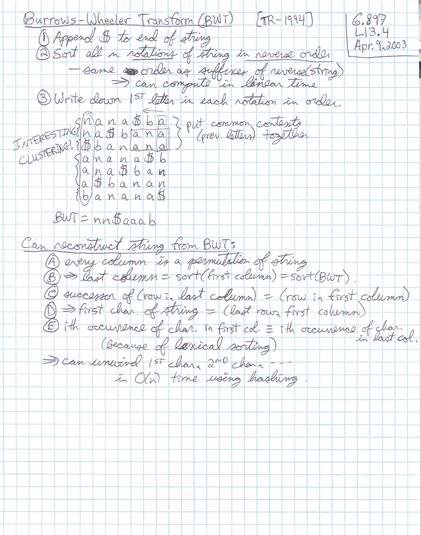 Burrows-Wheeler Transform (BWT) [TR-1994]
6.897
L13.4
Apr. 9, 2003
① Append $ to end of string
② Sort all n rotations of string in reverse order
- same order as suffixes of reverse(string)
⇒ can compute in linear time
③ Write down 1ST letter in each rotation in order.
INTERESTING CLUSTERING!
n a n a $ b a
n a $ b a n a
$ b a n a n a
a n a n a $ b
a n a $ b a n
a $ b a n a n
b a n a n a $
put common contexts
(prev. letters) together
BWT = nn$aaab
Can reconstruct string from BWT:
Ⓐ every column is a permutation of string
Ⓑ ⇒ last column = sort(first column) = sort(BWT).
Ⓒ successor of (row i, last column) = (row i, first column)
Ⓓ ⇒ first char. of string = (last row, first column)
Ⓔ ith occurrence of char. in first col ≡ ith occurrence of char. in last col.
(because of lexical sorting)
⇒ can unwind 1ST char, 2ND char, ----
in O(n) time using hashing.